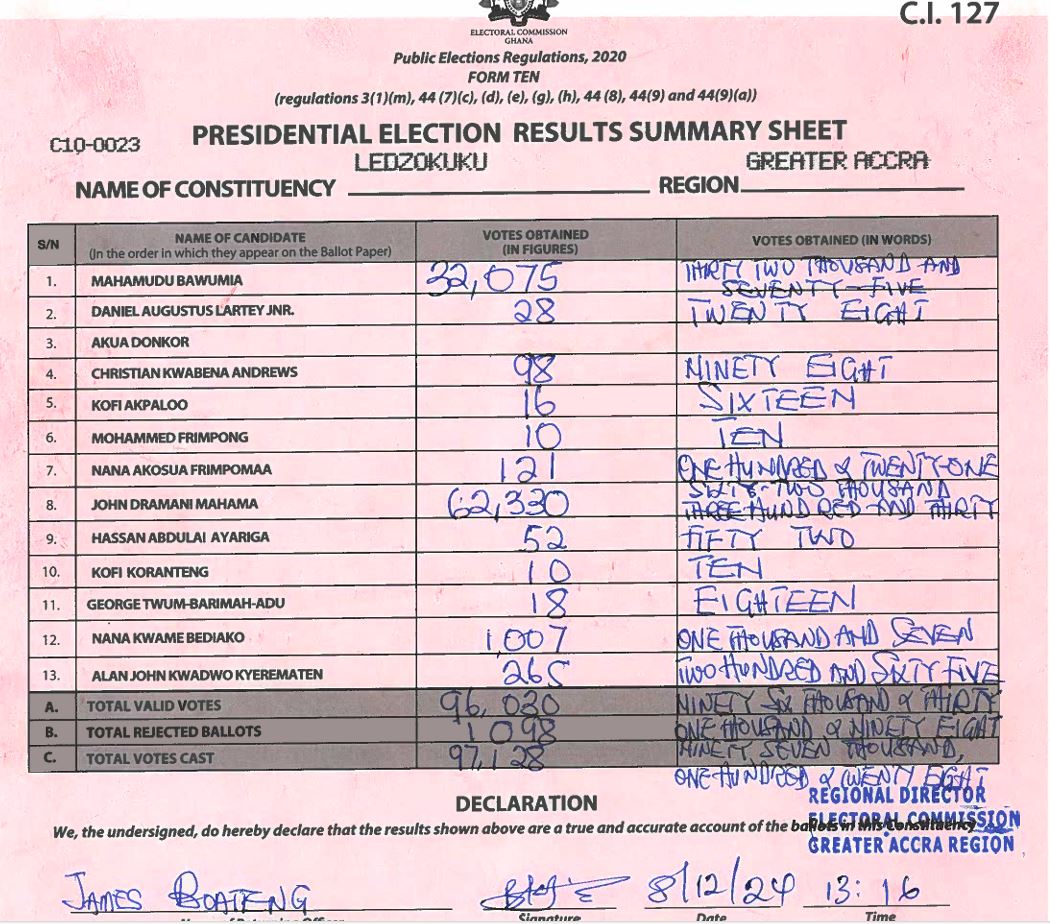 C.I. 127
ELECTORAL COMMISSION
GHANA
Public Elections Regulations, 2020
FORM TEN
(regulations 3(1)(m), 44 (7)(c), (d), (e), (g), (h), 44 (8), 44(9) and 44(9)(a))
C10-0023
PRESIDENTIAL ELECTION RESULTS SUMMARY SHEET
LEDZOKUKU GREATER ACCRA
NAME OF CONSTITUENCY REGION
S/N NAME OF CANDIDATE (In the order in which they appear on the Ballot Paper) VOTES OBTAINED (IN FIGURES) VOTES OBTAINED (IN WORDS)
1. MAHAMUDU BAWUMIA 32,075 THIRTY TWO THOUSAND AND SEVENTY-FIVE
2. DANIEL AUGUSTUS LARTEY JNR. 28 TWENTY EIGHT
3. AKUA DONKOR
4. CHRISTIAN KWABENA ANDREWS 98 NINETY EIGHT
5. KOFI AKPALOO 16 SIXTEEN
6. MOHAMMED FRIMPONG 10 TEN
7. NANA AKOSUA FRIMPOMAA 121 ONE HUNDRED & TWENTY-ONE
8. JOHN DRAMANI MAHAMA 62,330 SIXTY-TWO THOUSAND THREE HUNDRED AND THIRTY
9. HASSAN ABDULAI AYARIGA 52 FIFTY TWO
10. KOFI KORANTENG 10 TEN
11. GEORGE TWUM-BARIMAH-ADU 18 EIGHTEEN
12. NANA KWAME BEDIAKO 1,007 ONE THOUSAND AND SEVEN
13. ALAN JOHN KWADWO KYEREMATEN 265 TWO HUNDRED AND SIXTY FIVE
A. TOTAL VALID VOTES 96,030 NINETY SIX THOUSAND & THIRTY
B. TOTAL REJECTED BALLOTS 1098 ONE THOUSAND & NINETY EIGHT
C. TOTAL VOTES CAST 97,128 NINETY SEVEN THOUSAND, ONE HUNDRED & TWENTY EIGHT
DECLARATION
REGIONAL DIRECTOR
We, the undersigned, do hereby declare that the results shown above are a true and accurate account of the ballots in this Constituency
ELECTORAL COMMISSION
GREATER ACCRA REGION
JAMES BOATENG 8/12/24 13:16
Signature Date Time